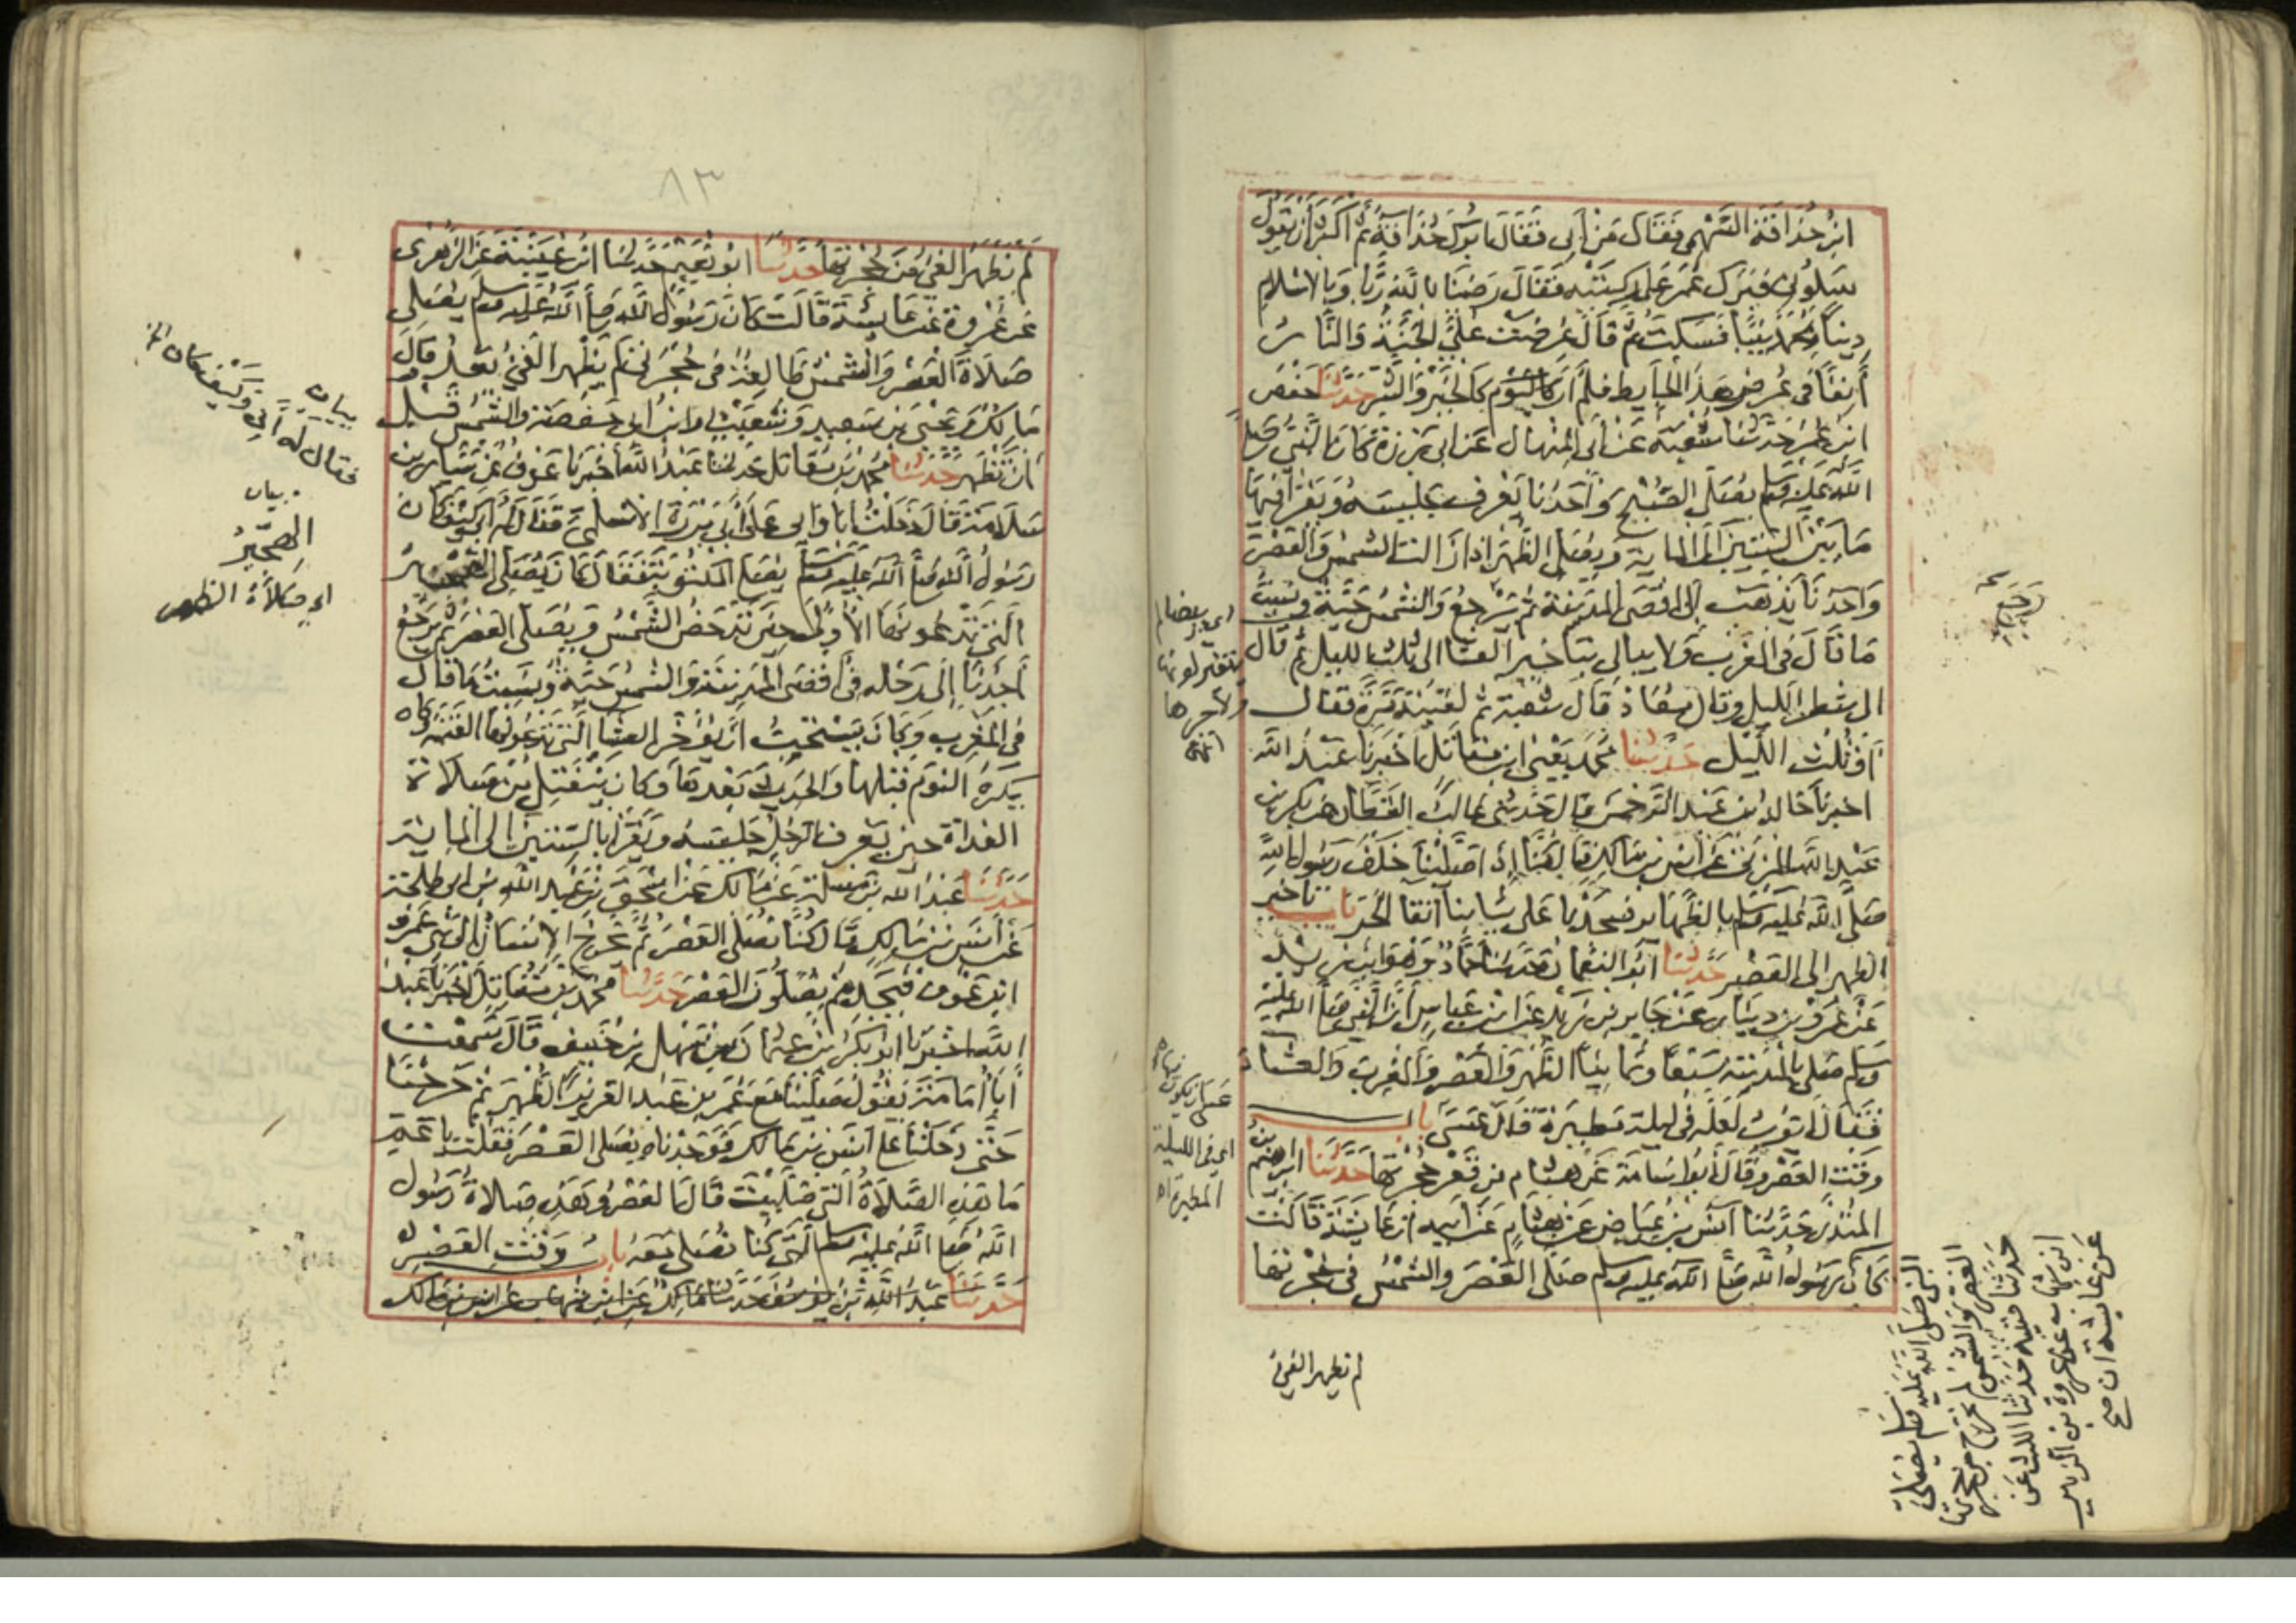 ابن حذافة السهمي فقال من أبي فقال ابوك حذافة ثم أكثر أن يقول
سلوني فبرك عمر على ركبتيه فقال رضينا بالله ربا وبالاسلام
دينا وبمحمد نبيا فسكت ثم قال عرضت علي الجنة والنار
آنفا في عرض هذا الحايط فلم أر كاليوم كالخير والشر حدثنا حفص
ابن عمر حدثنا شعبة عن أبي المنهال عن ابي برزة كان النبي صلى
الله عليه وسلم يصلي الصبح وأحدنا يعرف جليسه ويقرأ فيها
ما بين الستين الى الماية ويصلي الظهر اذا زالت الشمس والعصر
وأحدنا يذهب إلى أقصى المدينة ثم يرجع والشمس حية ونسيت
ما قال في المغرب ولا يبالي بتاخير العشا الى ثلث الليل ثم قال
الى شطر الليل وقال معاذ قال شعبة ثم لقيته مرة فقال
أو ثلث الليل حدثنا محمد يعني ابن مقاتل أخبرنا عبد الله
اخبرنا خالد بن عبد الرحمن قال حدثني غالب القطان عن بكر بن
عبد الله المزني عن أنس بن مالك قال كنا إذا صلينا خلف رسول الله
صلى الله عليه وسلم بالظهاير فسجدنا على ثيابنا اتقا الحر باب تاخير
الظهر الى العصر حدثنا أبو النعمان حدثنا حماد وهو ابن زيد
عن عمرو بن دينار عن جابر بن زيد عن ابن عباس أن النبي صلى الله عليه
وسلم صلى بالمدينة سبعا وثمانيا الظهر والعصر والمغرب والعشا
فقال ايوب لعله في ليلة مطيرة قال عسى باب
وقت العصر وقال أبو اسامة عن هشام من قعر حجرتها حدثنا ابرهيم بن
المنذر حدثنا أنس بن عياض عن هشام عن أبيه أن عايشة قالت
كان رسول الله صلى الله عليه وسلم صلى العصر والشمس في حجرتها
لم تظهر الفيء
اي بيضا لم
يتغير لونها
ولا حرها
انتهى
عسى ان يكون
اي في الليلة
المطيرة اه
النبي صلى الله عليه وسلم يصلي
العصر والشمس لم تخرج من حجرتها
حدثنا قتيبة حدثنا الليث عن
ابن شهاب عن عروة بن الزبير
عن عايشة ان صح
٨٣
لم يظهر الفيء من حجرتها حدثنا ابو نعيم حدثنا ابن عيينة عن الزهري
عن عروة عن عايشة قالت كان رسول الله صلى الله عليه وسلم يصلي
صلاة العصر والشمس طالعة في حجرتي لم يظهر الفيء بعد وقال
مالك ويحيى بن سعيد وشعيب وابن ابي حفصة والشمس قبل
ان تظهر حدثنا محمد بن مقاتل حدثنا عبد الله أخبرنا عوف عن سيار بن
سلامة قال دخلت أنا وابي على أبي برزة الاسلمي فقال له ابي كيف كان
رسول الله صلى الله عليه وسلم يصلي المكتوبة فقال كان يصلي الهجير
التي تدعونها الأولى حين تدحض الشمس ويصلي العصر ثم يرجع
أحدنا إلى رحله في أقصى المدينة والشمس حية ونسيت ما قال
في المغرب وكان يستحب أن يؤخر العشا التي تدعونها العتمة وكان
يكره النوم قبلها والحديث بعدها وكان ينفتل من صلاة
الغداة حين يعرف الرجل جليسه ويقرأ بالستين الى الماية
حدثنا عبد الله بن مسلمة عن مالك عن اسحق بن عبد الله بن ابي طلحة
عن أنس بن مالك قال كنا نصلي العصر ثم يخرج الانسان إلى بني عمرو
ابن عوف فيجدهم يصلون العصر حدثنا محمد بن مقاتل اخبرنا عبد
الله اخبرنا ابو بكر بن عثمان بن سهل بن حنيف قال سمعت
أبا أمامة يقول صلينا مع عمر بن عبد العزيز الظهر ثم خرجنا
حتى دخلنا على أنس بن مالك فوجدناه يصلي العصر فقلت يا عم
ما هذه الصلاة التي صليت قال العصر وهذه صلاة رسول
الله صلى الله عليه وسلم التي كنا نصلي معه باب وقت العصر
حدثنا عبد الله بن يوسف حدثنا مالك عن ابن شهاب عن انس بن مالك
بيان
فقال له أبي وكيف كان الخ
بيان
الهجير
اي صلاة الظهر